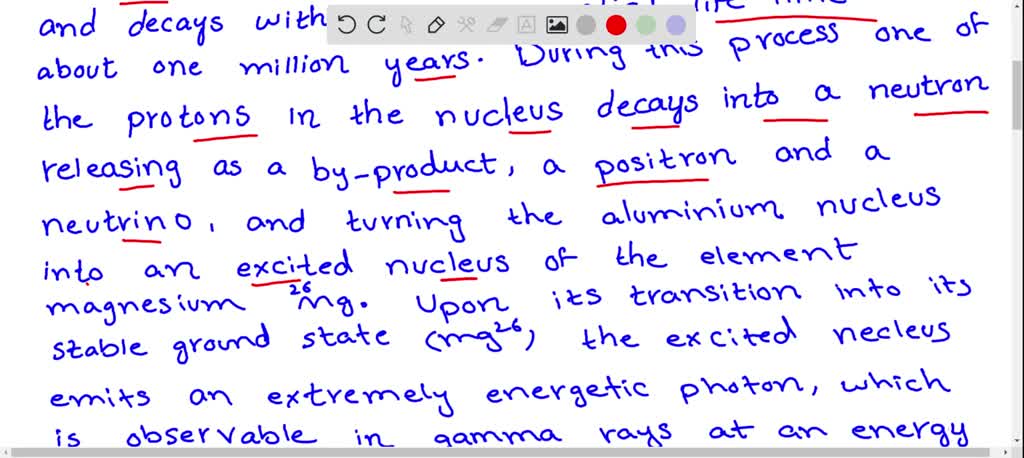 and decays with life time
about one million years. During this process one of
the protons in the nucleus decays into a neutron
releasing as a by-product, a positron and a
neutrino, and turning the aluminium nucleus
into an excited nucleus of the element
magnesium ²⁶Mg. Upon its transition into its
stable ground state (mg²⁶), the excited necleus
emits an extremely energetic photon, which
is observable in gamma rays at an energy